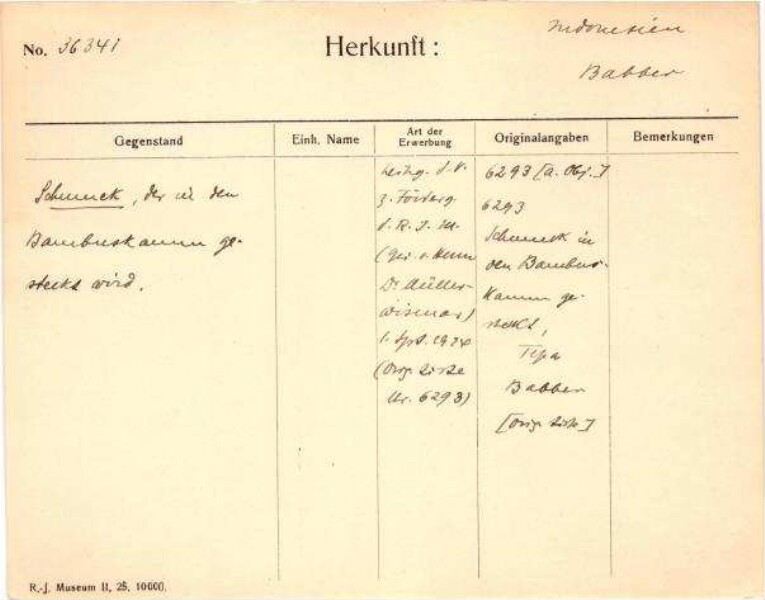 No. 36341
Herkunft:
Indonesien
Babber
Gegenstand
Einh. Name
Art der Erwerbung
Originalangaben
Bemerkungen
Schmuck, der in den
Bambuskamm ge-
steckt wird.
Leihg. d. V.
z. Förderg.
d. R. J. M.
(Ges. v. Herrn
Dr. Müller-
Wismar)
1. Spt. 1914
(Orig. Liste
Nr. 6293)
6293 [a. Obj.]
6293
Schmuck in
den Bambus-
kamm ge-
steckt,
Tepa
Babber
[Orig. Liste]
R.-J. Museum II, 25, 10000.